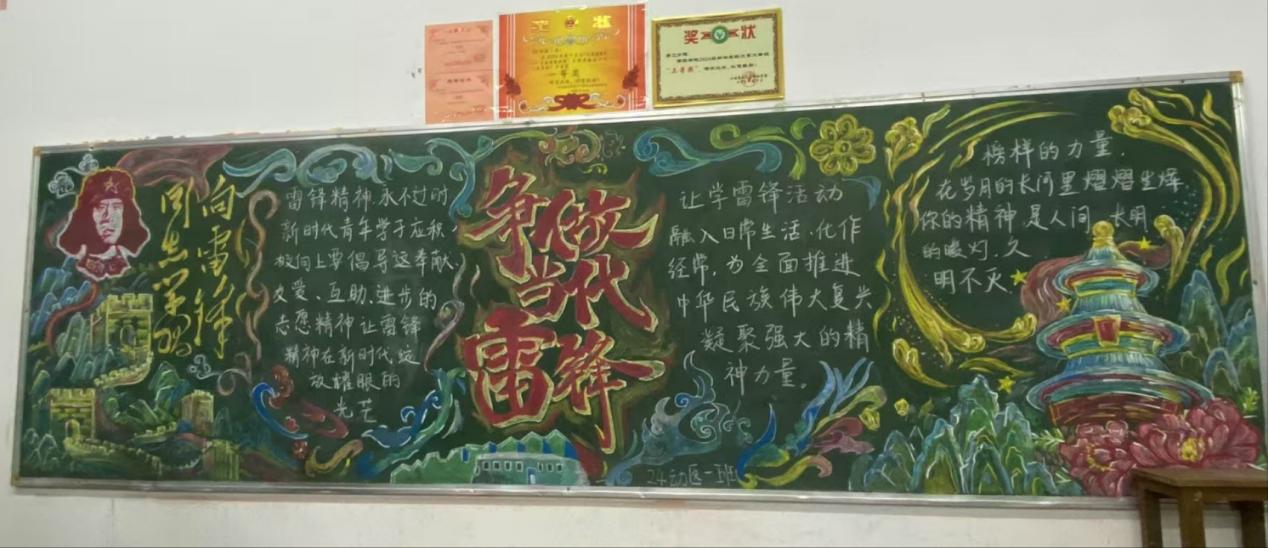 奖状
奖状
一等奖
"三等奖"
向雷锋
同志学习
雷锋精神,永不过时
新时代青年学子应积
极向上要倡导这奉献、
友爱、互助、进步的
志愿精神让雷锋
精神在新时代,绽
放耀眼的
光芒
争做
当代
雷锋
让学雷锋活动
融入日常生活,化作
经常,为全面推进
中华民族伟大复兴
凝聚强大的精
神力量。
24动医一班
榜样的力量.
在岁月的长河里熠熠生辉.
你的精神是人间 长明
的暖灯,久
明不灭.